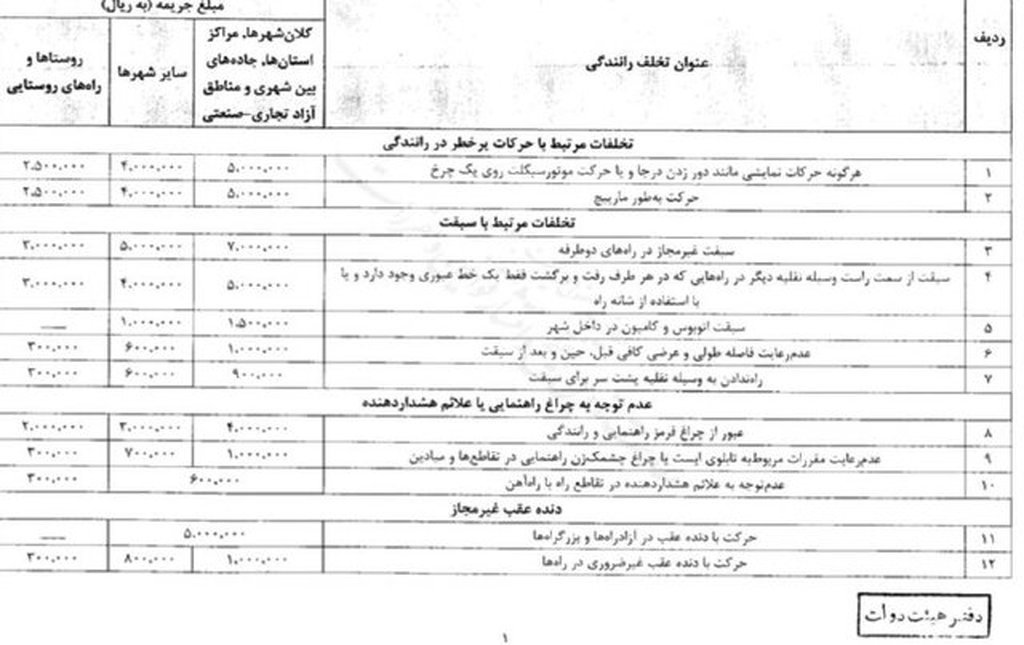 مبلغ جریمه (به ریال)
ردیف
عنوان تخلف رانندگی
کلان‌شهرها، مراکز
استان‌ها، جاده‌های
بین شهری و مناطق
آزاد تجاری-صنعتی
سایر شهرها
روستاها و
راه‌های روستایی
تخلفات مرتبط با حرکات پرخطر در رانندگی
۱ هرگونه حرکات نمایشی مانند دور زدن درجا و یا حرکت موتورسیکلت روی یک چرخ ۵،۰۰۰،۰۰۰ ۴،۰۰۰،۰۰۰ ۲،۵۰۰،۰۰۰
۲ حرکت به‌طور مارپیچ ۵،۰۰۰،۰۰۰ ۴،۰۰۰،۰۰۰ ۲،۵۰۰،۰۰۰
تخلفات مرتبط با سبقت
۳ سبقت غیرمجاز در راه‌های دوطرفه ۷،۰۰۰،۰۰۰ ۵،۰۰۰،۰۰۰ ۳،۰۰۰،۰۰۰
۴ سبقت از سمت راست وسیله نقلیه دیگر در راه‌هایی که در هر طرف رفت و برگشت فقط یک خط عبوری وجود دارد و یا
با استفاده از شانه راه ۵،۰۰۰،۰۰۰ ۴،۰۰۰،۰۰۰ ۳،۰۰۰،۰۰۰
۵ سبقت اتوبوس و کامیون در داخل شهر ۱،۵۰۰،۰۰۰ ۱،۰۰۰،۰۰۰ ــــ
۶ عدم‌رعایت فاصله طولی و عرضی کافی قبل، حین و بعد از سبقت ۱،۰۰۰،۰۰۰ ۶۰۰،۰۰۰ ۳۰۰،۰۰۰
۷ راه‌ندادن به وسیله نقلیه پشت سر برای سبقت ۹۰۰،۰۰۰ ۶۰۰،۰۰۰ ۳۰۰،۰۰۰
عدم توجه به چراغ راهنمایی یا علائم هشداردهنده
۸ عبور از چراغ قرمز راهنمایی و رانندگی ۴،۰۰۰،۰۰۰ ۳،۰۰۰،۰۰۰ ۲،۰۰۰،۰۰۰
۹ عدم‌رعایت مقررات مربوط‌به تابلوی ایست یا چراغ چشمک‌زن راهنمایی در تقاطع‌ها و میادین ۱،۰۰۰،۰۰۰ ۷۰۰،۰۰۰ ۳۰۰،۰۰۰
۱۰ عدم‌توجه به علائم هشداردهنده در تقاطع راه با راه‌آهن ۶۰۰،۰۰۰ ۳۰۰،۰۰۰
دنده عقب غیرمجاز
۱۱ حرکت با دنده عقب در آزادراه‌ها و بزرگراه‌ها ۵،۰۰۰،۰۰۰ ــــ
۱۲ حرکت با دنده عقب غیرضروری در راه‌ها ۱،۰۰۰،۰۰۰ ۸۰۰،۰۰۰ ۳۰۰،۰۰۰
دفتر هیئت دولت
۱